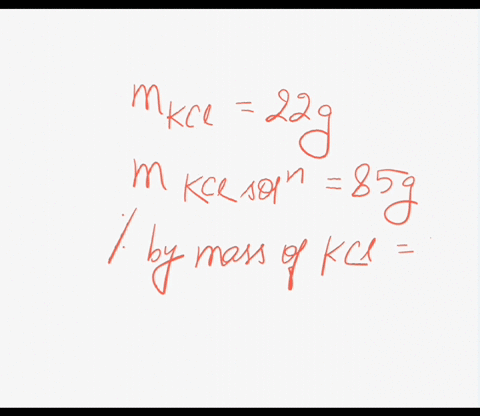 mKCl = 22g
m KCl solⁿ = 85g
% by mass of KCl =